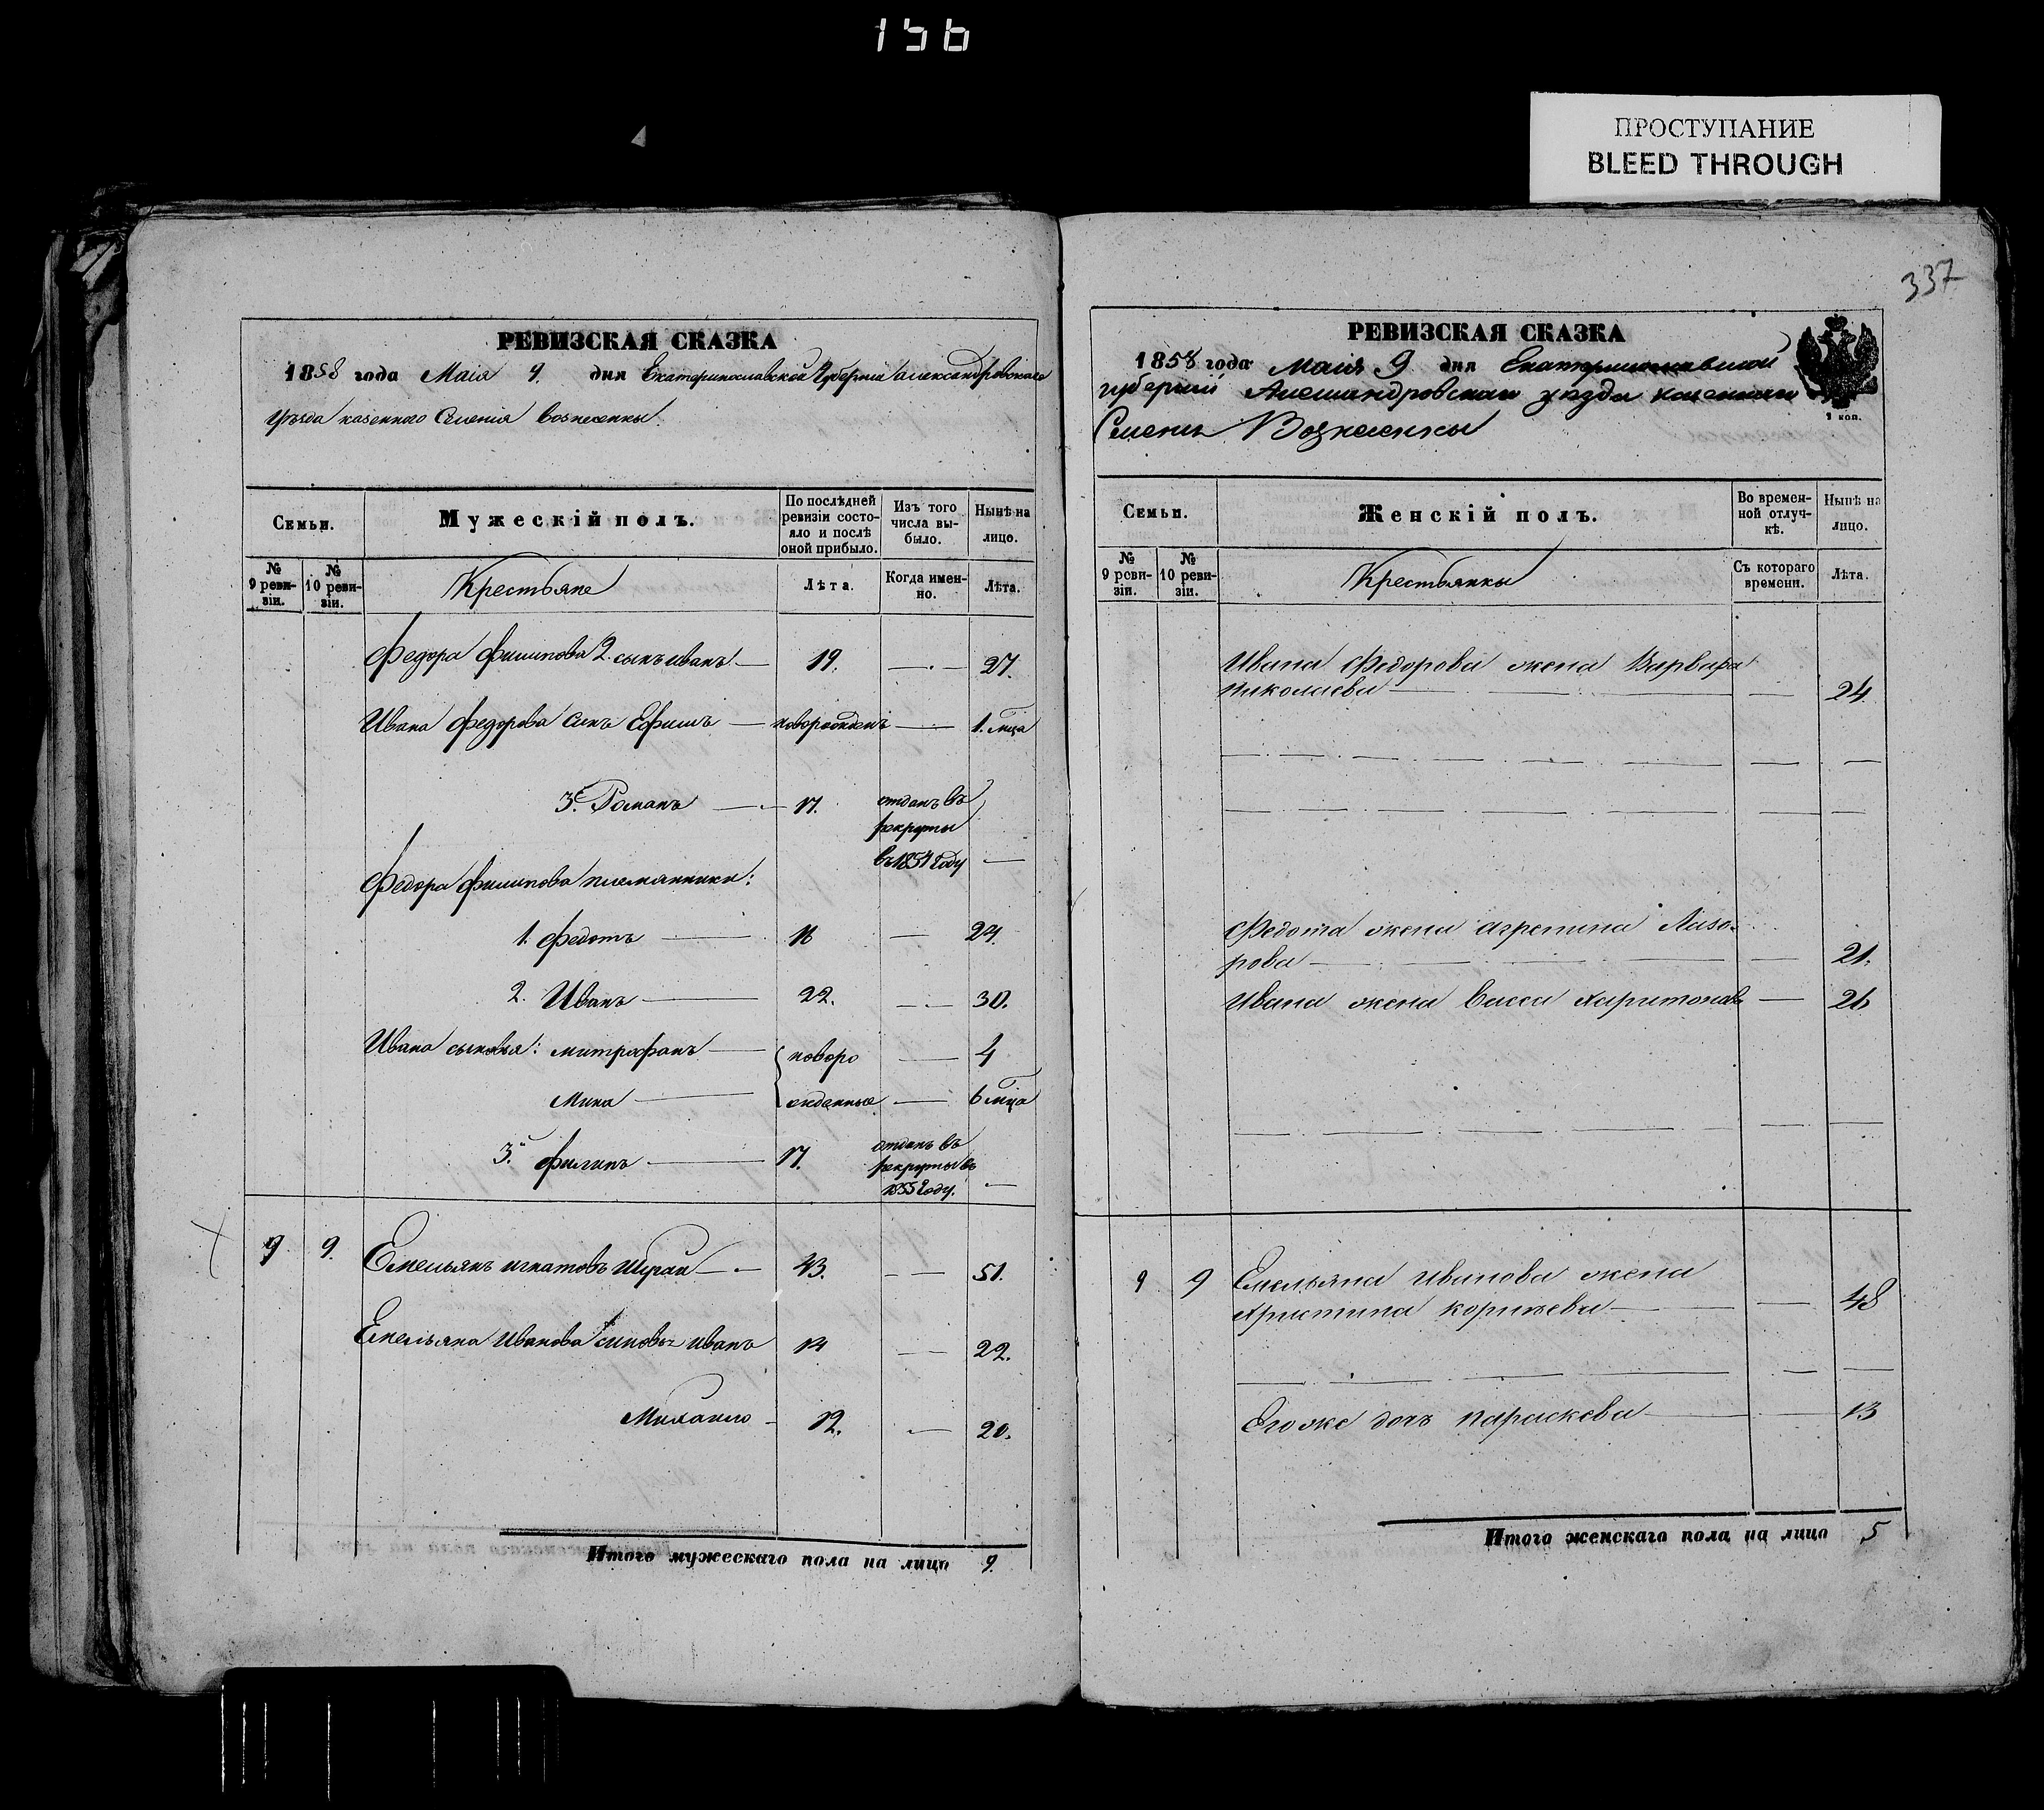 156
ПРОСТУПАНИЕ
BLEED THROUGH
337
РЕВИЗСКАЯ СКАЗКА
1858 года Маія 9. дня Екатеринославской Губерніи Александровскаго
уѣзда казенного Селенія вознесенки.
Семьи.
Мужескій полъ.
По послѣдней ревизіи состояло и послѣ оной прибыло.
Изъ того числа выбыло.
Нынѣ на лицо.
№ 9 ревизіи.
№ 10 ревизіи.
Крестьяне
Лѣта.
Когда именно.
Лѣта.
Федора Филипова 2. сынъ иванъ — 19. — 27.
Ивана Федорова Сынъ Ефимъ — новорожденъ — 1. мца
3. Романъ — 17. отданъ въ
рекруты
въ 1854 Году —
Федора Филипова племянники:
1. Федотъ — 16 — 24.
2. Иванъ — 22. — 30.
Ивана сыновья: митрофанъ — новоро — 4
Мина — жденные — 6 мца
3. Филипъ — 17. отданъ въ
рекруты въ
1855 Году. —
9 9. Емельянъ игнатовъ — 43. — 51.
Емельяна Иванова сыновья иванъ 14 — 22.
Михаило — 12. — 20.
Итого мужескаго пола на лицо 9.
РЕВИЗСКАЯ СКАЗКА
1858 года Маія 9 дня Екатеринославской
губерніи Александровскаго уезда казенного
Селенія Вознесенки
1 коп.
Семьи.
Женскій полъ.
Во временной отлучкѣ.
Нынѣ на лицо.
№ 9 ревизіи.
№ 10 ревизіи.
Крестьянки
Съ котораго времени.
Лѣта.
Ивана Федорова жена Варвара
Николаева — — 24.
Федота жена агрепина Лазо-
рова — — 21.
Ивана жена Васса Харитонова — 26
9 9 Емельяна Иванова жена
Христина корнѣева — — 48
Его же дочь параскева — — 13
Итого женскаго пола на лицо 5